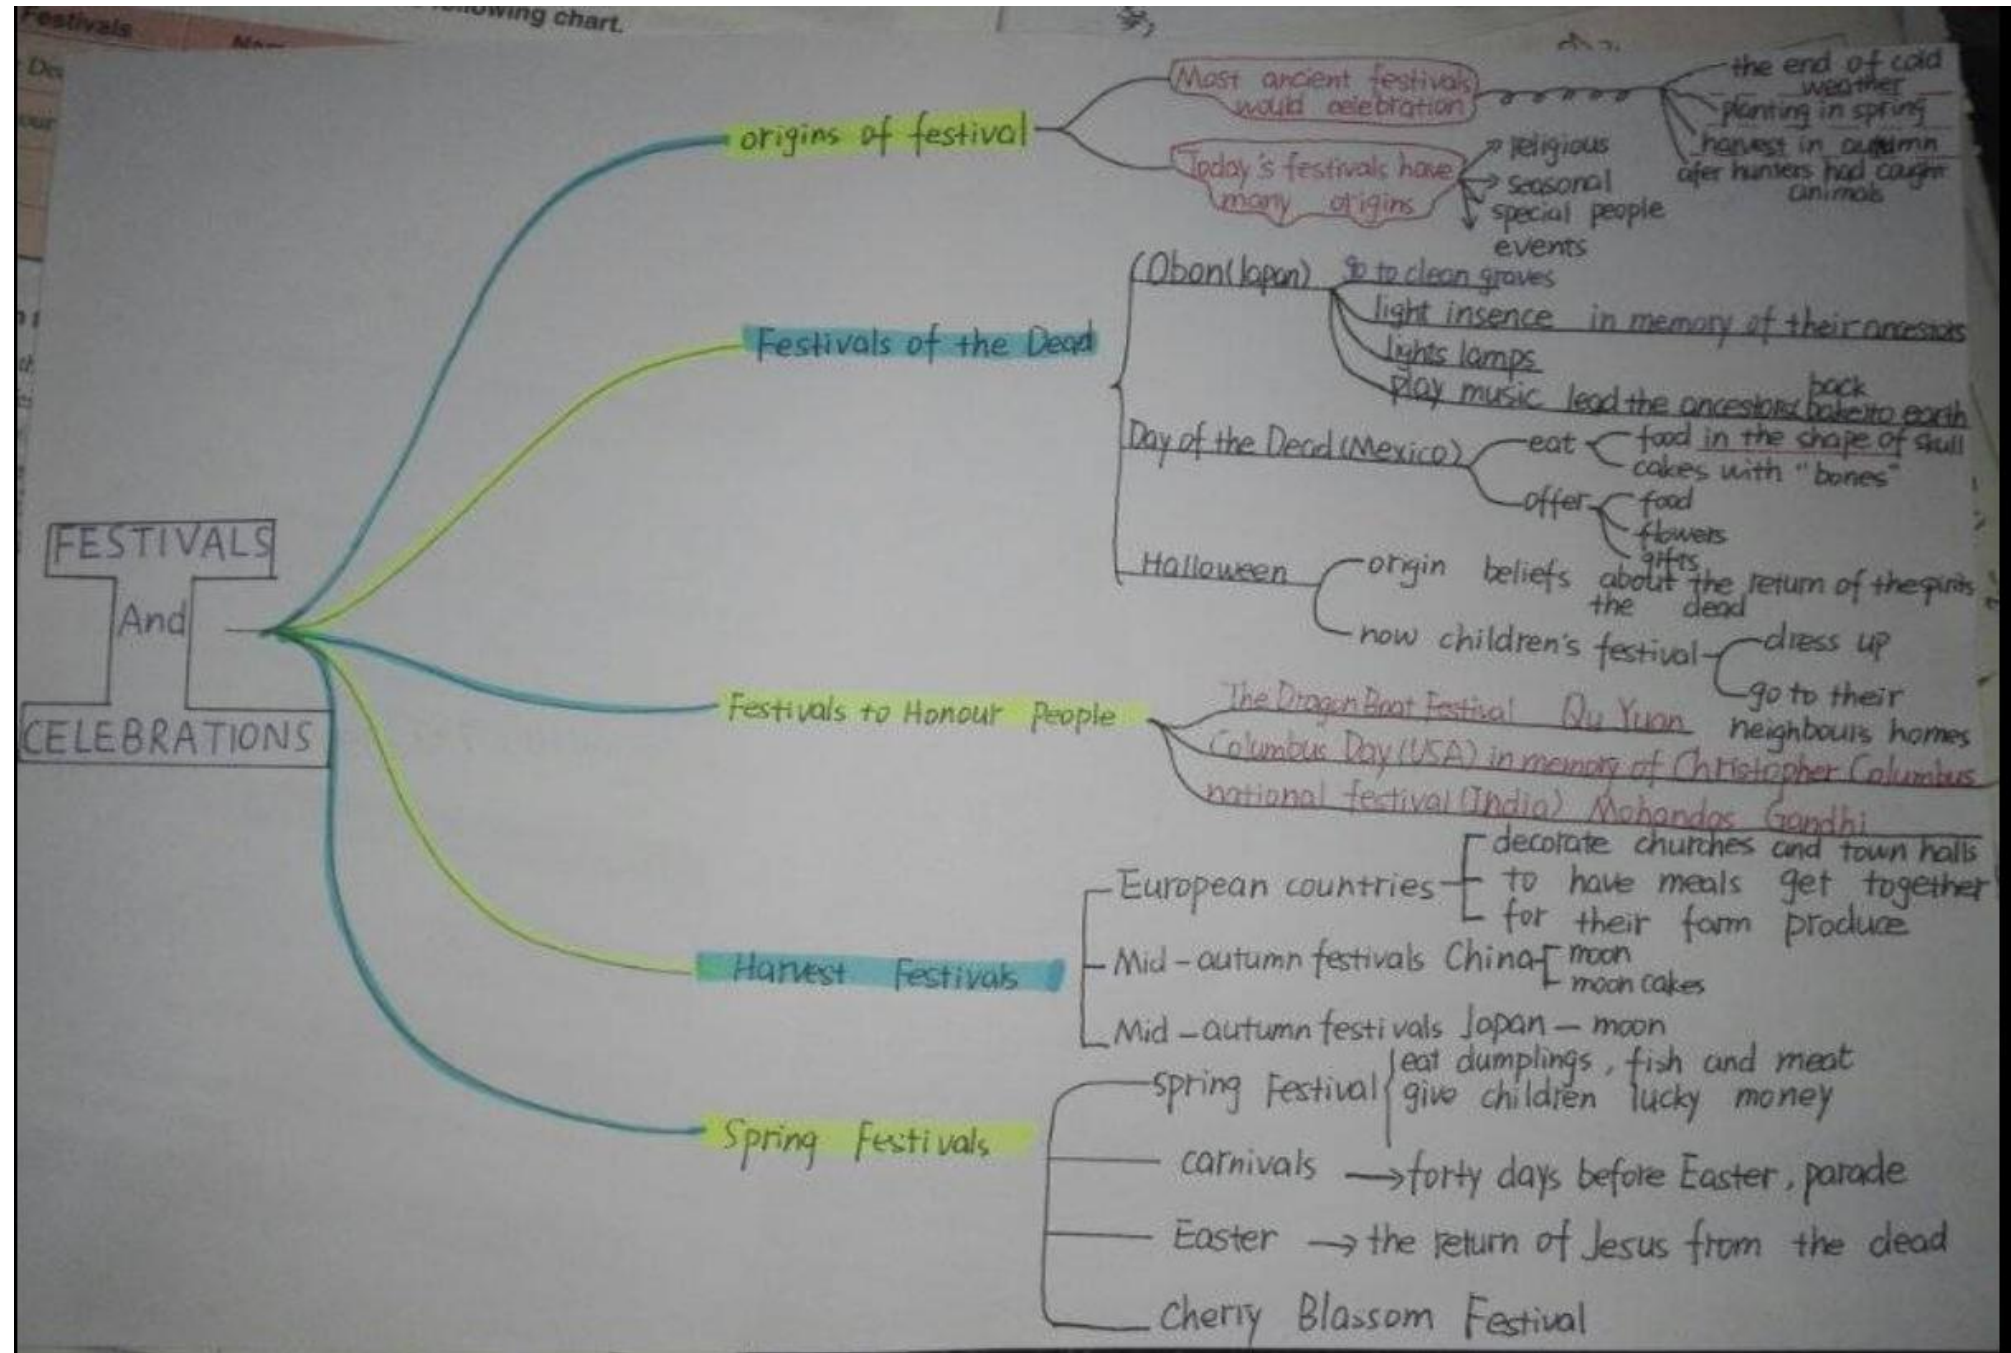 Festivals
following chart.
FESTIVALS
And
CELEBRATIONS
origins of festival
Most ancient festivals
would celebration
the end of cold
weather
planting in spring
harvest in autumn
afer hunters had caught
animals
Today's festivals have
many origins
religious
seasonal
special people
events
Festivals of the Dead
Obon(Japan)
go to clean graves
light insence in memory of their ancestors
lights lamps
back
play music lead the ancestors to earth
Day of the Dead(Mexico)
eat
food in the shape of skull
cakes with "bones"
offer
food
flowers
gifts
Halloween
origin beliefs about the return of the spirits
the dead
now children's festival
dress up
go to their
neighbours homes
Festivals to Honour People
The Dragon Boat Festival Qu Yuan
Columbus Day(USA) in memory of Christopher Columbus
national festival(India) Mohandas Gandhi
Harvest Festivals
European countries
decorate churches and town halls
to have meals get together
for their farm produce
Mid-autumn festivals China
moon
moon cakes
Mid-autumn festivals Japan - moon
Spring Festivals
spring Festival
eat dumplings, fish and meat
give children lucky money
carnivals → forty days before Easter, parade
Easter → the return of Jesus from the dead
Cherry Blassom Festival